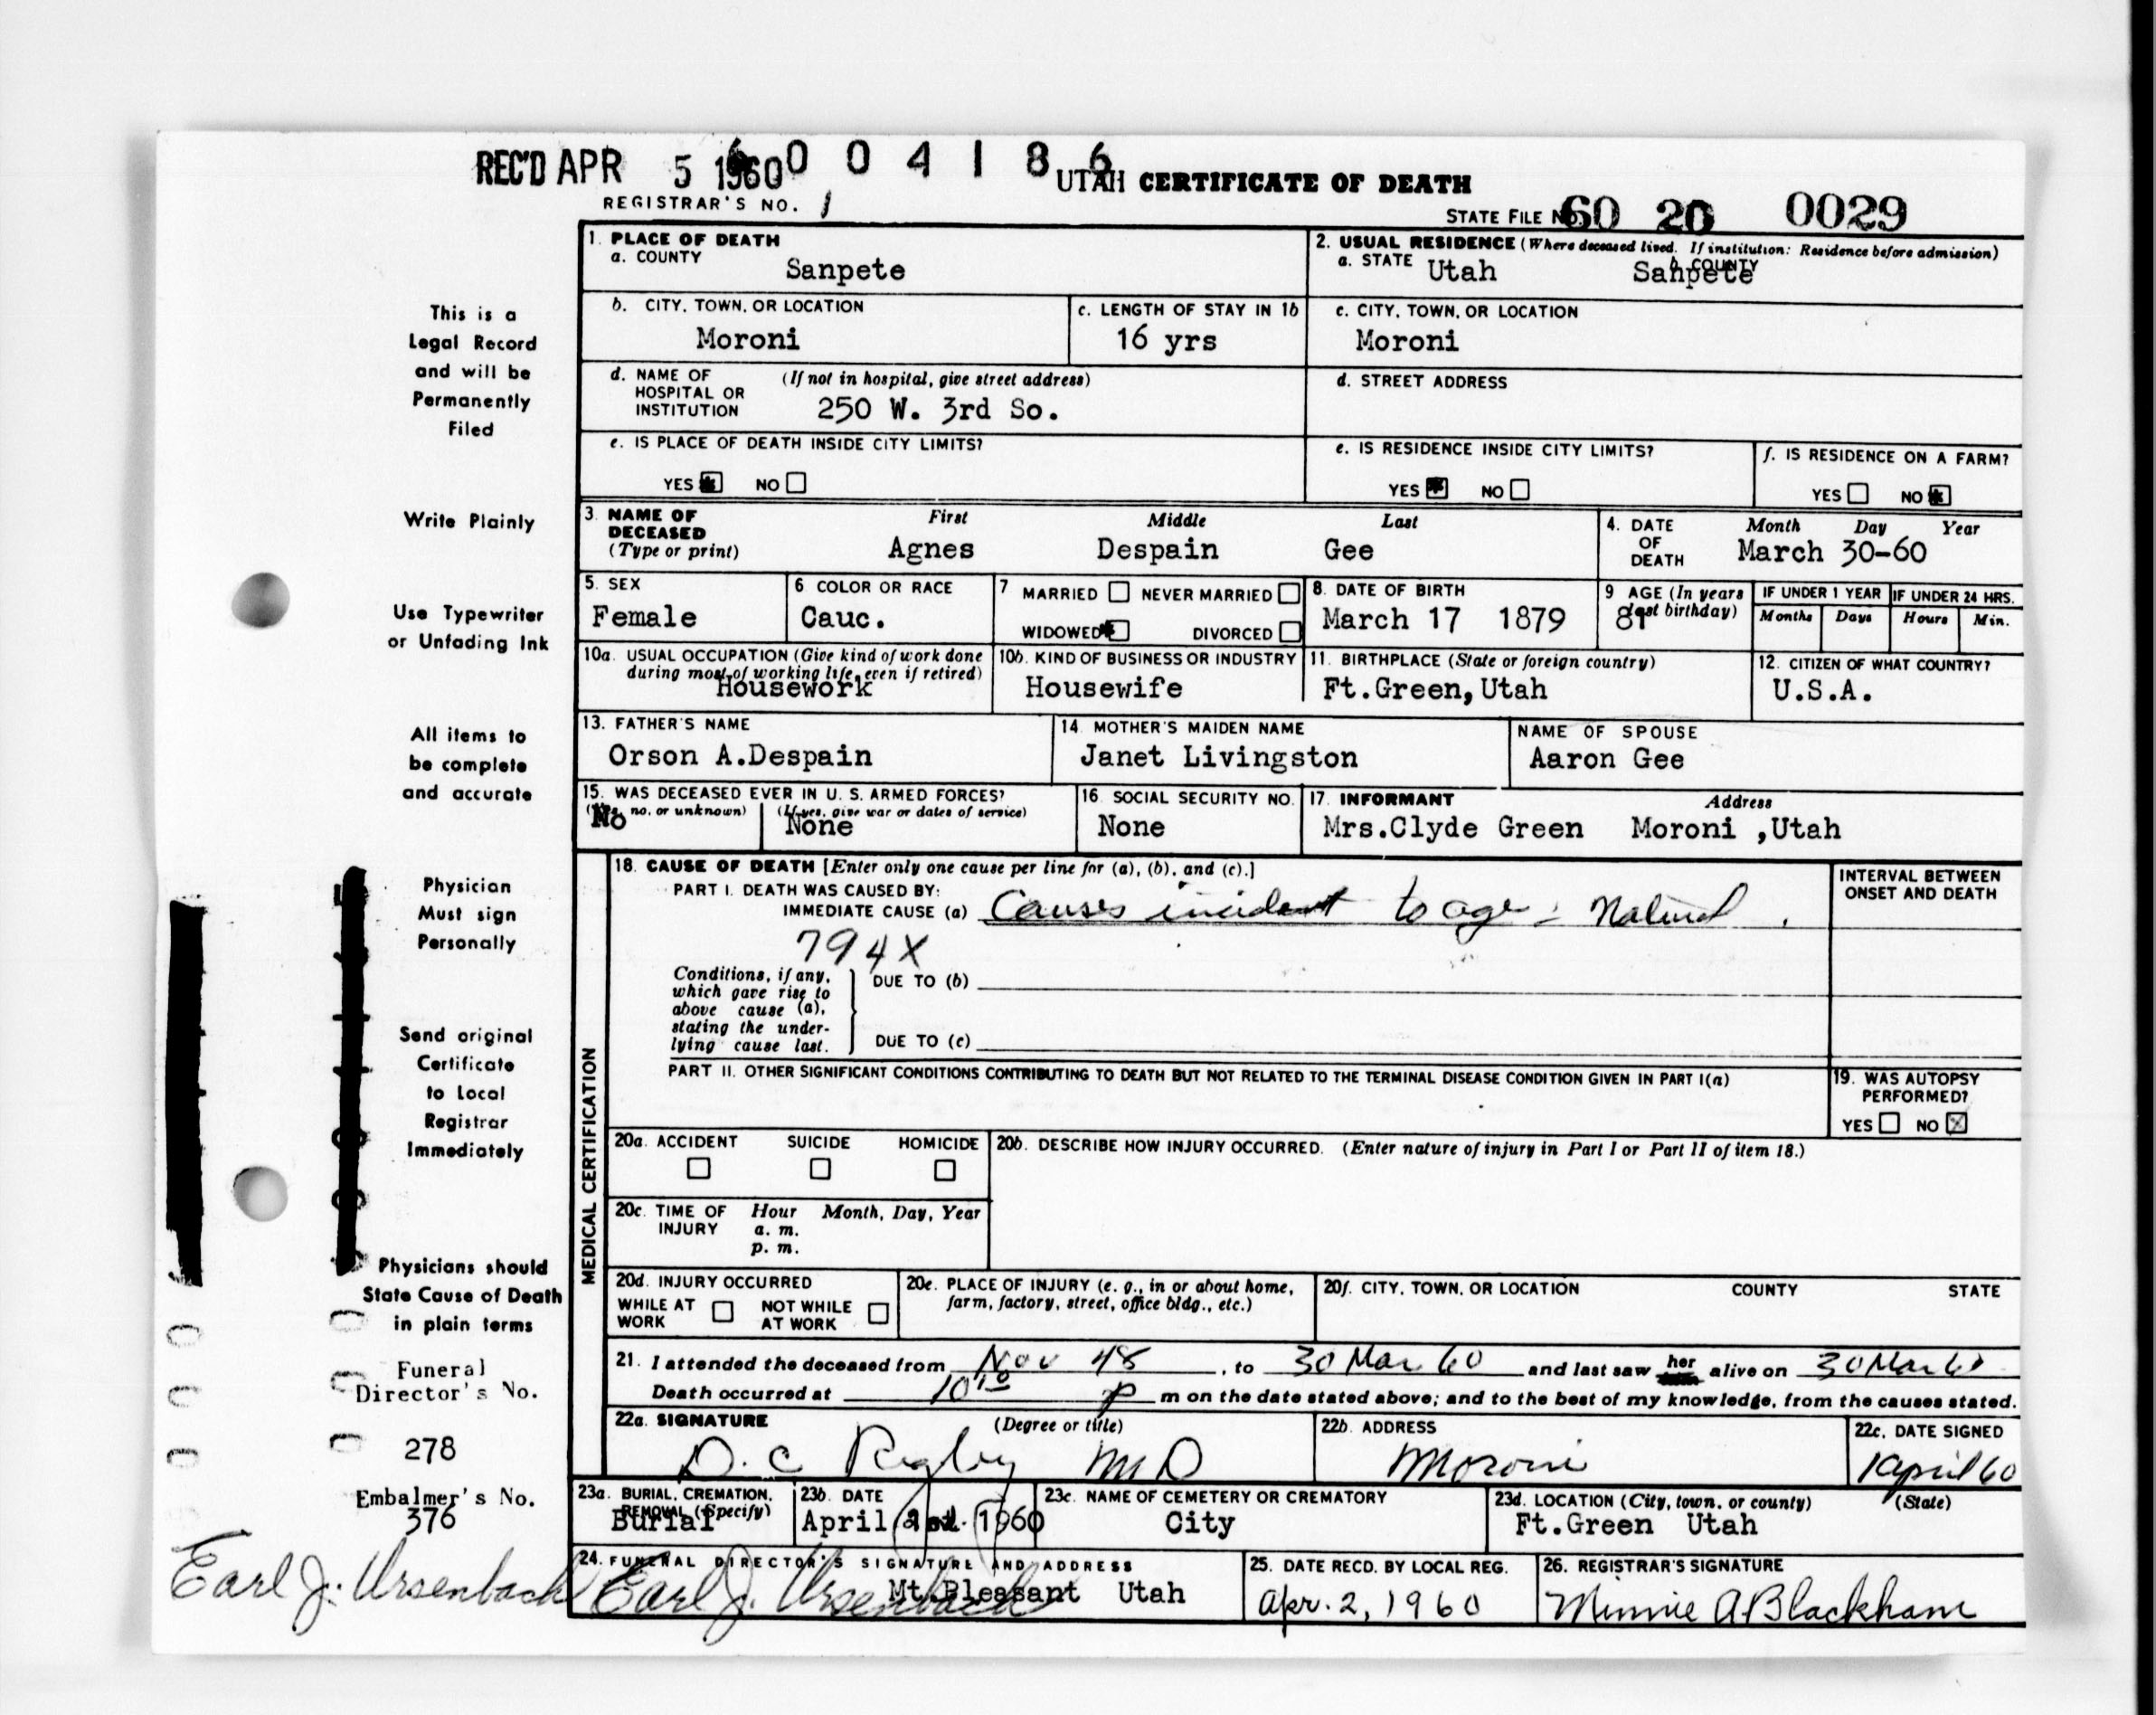 REC'D APR 5 1960 6 0 0 4 1 8 6 UTAH CERTIFICATE OF DEATH
REGISTRAR'S NO. 1
STATE FILE NO. 60 20 0029
1. PLACE OF DEATH
a. COUNTY
Sanpete
2. USUAL RESIDENCE (Where deceased lived. If institution: Residence before admission)
a. STATE Utah b. COUNTY Sanpete
b. CITY, TOWN, OR LOCATION
Moroni
c. LENGTH OF STAY IN 1b
16 yrs
c. CITY, TOWN, OR LOCATION
Moroni
d. NAME OF HOSPITAL OR INSTITUTION (If not in hospital, give street address)
250 W. 3rd So.
d. STREET ADDRESS
e. IS PLACE OF DEATH INSIDE CITY LIMITS?
YES NO
e. IS RESIDENCE INSIDE CITY LIMITS?
YES NO
f. IS RESIDENCE ON A FARM?
YES NO
3. NAME OF DECEASED (Type or print)
First Middle Last
Agnes Despain Gee
4. DATE OF DEATH Month Day Year
March 30-60
5. SEX
Female
6 COLOR OR RACE
Cauc.
7 MARRIED NEVER MARRIED
WIDOWED DIVORCED
8. DATE OF BIRTH
March 17 1879
9 AGE (In years last birthday)
81
IF UNDER 1 YEAR IF UNDER 24 HRS.
Months Days Hours Min.
10a. USUAL OCCUPATION (Give kind of work done during most of working life, even if retired)
Housework
10b. KIND OF BUSINESS OR INDUSTRY
Housewife
11. BIRTHPLACE (State or foreign country)
Ft.Green, Utah
12. CITIZEN OF WHAT COUNTRY?
U.S.A.
13. FATHER'S NAME
Orson A.Despain
14 MOTHER'S MAIDEN NAME
Janet Livingston
NAME OF SPOUSE
Aaron Gee
15. WAS DECEASED EVER IN U. S. ARMED FORCES?
(Yes, no, or unknown) (If yes, give war or dates of service)
No None
16. SOCIAL SECURITY NO.
None
17. INFORMANT Address
Mrs.Clyde Green Moroni ,Utah
18. CAUSE OF DEATH [Enter only one cause per line for (a), (b), and (c).]
PART I. DEATH WAS CAUSED BY:
IMMEDIATE CAUSE (a) Causes incident to age : Natural .
794X
Conditions, if any, which gave rise to above cause (a), stating the underlying cause last.
DUE TO (b)
DUE TO (c)
INTERVAL BETWEEN ONSET AND DEATH
PART II. OTHER SIGNIFICANT CONDITIONS CONTRIBUTING TO DEATH BUT NOT RELATED TO THE TERMINAL DISEASE CONDITION GIVEN IN PART I(a)
19. WAS AUTOPSY PERFORMED?
YES NO
20a. ACCIDENT SUICIDE HOMICIDE
20b. DESCRIBE HOW INJURY OCCURRED. (Enter nature of injury in Part I or Part II of item 18.)
20c. TIME OF INJURY Hour Month, Day, Year
a. m.
p. m.
20d. INJURY OCCURRED
WHILE AT WORK NOT WHILE AT WORK
20e. PLACE OF INJURY (e. g., in or about home, farm, factory, street, office bldg., etc.)
20f. CITY, TOWN, OR LOCATION COUNTY STATE
21. I attended the deceased from Nov 48, to 30 Mar 60 and last saw her alive on 30 Mar 60
Death occurred at 10 10 p m on the date stated above; and to the best of my knowledge, from the causes stated.
22a. SIGNATURE (Degree or title)
D. C Rigby MD
22b. ADDRESS
Moroni
22c. DATE SIGNED
1 april 60
MEDICAL CERTIFICATION
23a. BURIAL, CREMATION, REMOVAL (Specify)
Burial
23b. DATE
April 1960
23c. NAME OF CEMETERY OR CREMATORY
City
23d. LOCATION (City, town, or county) (State)
Ft.Green Utah
24. FUNERAL DIRECTOR'S SIGNATURE AND ADDRESS
Earl J. Ursenbach Mt.Pleasant Utah
25. DATE RECD. BY LOCAL REG.
Apr. 2, 1960
26. REGISTRAR'S SIGNATURE
Minnie A. Blackham
This is a
Legal Record
and will be
Permanently
Filed
Write Plainly
Use Typewriter
or Unfading Ink
All items to
be complete
and accurate
Physician
Must sign
Personally
Send original
Certificate
to Local
Registrar
Immediately
Physicians should
State Cause of Death
in plain terms
Funeral
Director's No.
278
Embalmer's No.
376
Earl J. Ursenbach